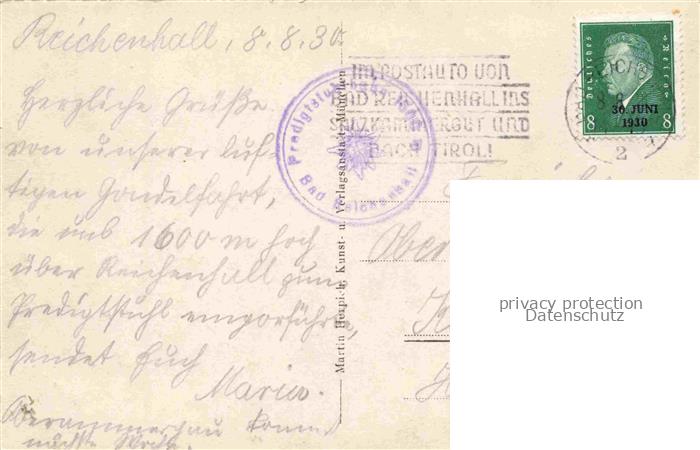 Reichenhall, 8.8.30.
Herzliche Grüße
von unserer luf-
tigen Gondelfahrt,
die uns 1600 m hoch
über Reichenhall zum
Predigtstuhl emporführte,
sendet Euch
Oberammergau
nächste Woche.
Martin Herpich, Kunst- u. Verlagsanstalt, München
Predigtstuhl
Bad Reichenhall
IM POSTAUTO VON
BAD REICHENHALL INS
SALZKAMMERGUT UND
NACH TIROL!
Deutsches Reich
30. JUNI
1930
8 8
2
Ober
privacy protection
Datenschutz